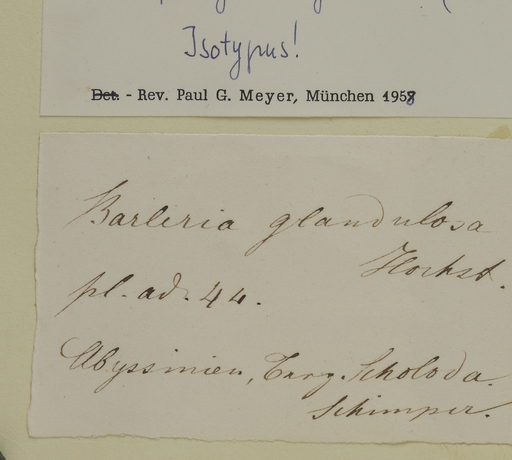 Isotypus!
Det. - Rev. Paul G. Meyer, München 1958
Barleria glandulosa
Hochst.
pl. ad. 44.
Abyssinien, Berg Scholoda.
Schimper.